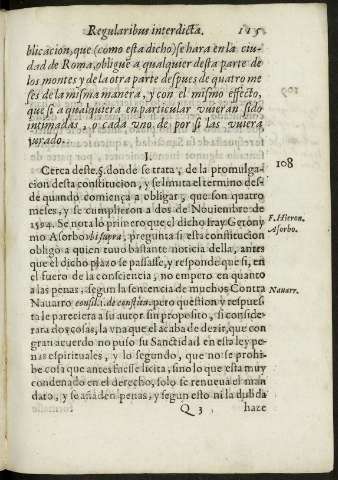 Regularibus interdicta. 115
blicacion, que (como esta dicho) se hara en la ciu-
dad de Roma, obligue a qualquier desta parte de
los montes y de la otra parte despues de quatro me
ses de la misma manera, y con el mismo effecto,
que si a qualquiera en particular vuieran sido
intimadas, o cada vno de por si las vuiera
jurado.
I.
108
Cerca deste.§. donde se trata, de la promulga-
cion desta constitucion, y se limita el termino des-
de quando comiença a obligar, que son quatro
meses, y se cumplieron a dos de Nouiembre de
1594. Se nota lo primero que el dicho fray Gerony
F. Hieron.
mo Asorbo vbi supra, pregunta si esta constitucion
Asorbo.
obligo a quien tuuo bastante noticia della, antes
que el dicho plazo se passasse, y responde que si, en
el fuero de la consciencia, no empero en quanto
a las penas, segun la sentencia de muchos Contra
Nauarr.
Nauarro consil. de constitu. pero question y respues
ta le pareciera a su autor sin proposito, si conside-
rara dos cosas, la vna que el acaba de dezir, que con
gran acuerdo no puso su Sanctidad en esta ley pe-
nas espirituales, y lo segundo, que no se prohi-
be cosa que antes fuesse licita, sino lo que esta muy
condenado en el derecho, solo se renueua el man
dato, y se añaden penas, y segun esto ni la dubda
Q 3 haze